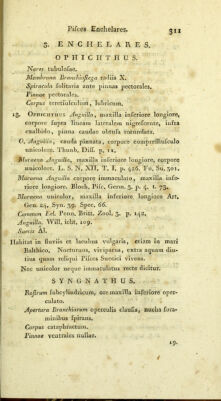 Pisces Enchelares. 311
3. ENCHELARES.
OPHICHTHUS.
Nares tubulosae.
Membrana Branchiostega radiis X.
Spiracula solitaria ante pinnas pectorales.
Pinnae pectorales.
Corpus teretiusculum, lubricum.
18. OPHICHTHUS Anguilla, maxilla inferiore longiore,
corpore supra lineam lateralem nigrescente, infra
exalbido, pinna caudae obtusa rotundata.
O. Anguilla, cauda pinnata, corpore compressiusculo
unicolore. Thunb. Diss. p. 11.
Muraena Anguilla, maxilla inferiore longiore, corpore
unicolore. L. S. N. XII, T. I, p. 426. Fn. Su. 301.
Muraena Anguilla corpore immaculato, maxilla infe-
riore longiore. Bloch. Pisc. Germ. 3. p. 4. t. 73.
Muraena unicolor, maxilla inferiore longiore Art.
Gen. 24, Syn. 39. Spec. 66.
Common Eel. Penn. Britt. Zool. 3. p. 142.
Anguilla. Will. icht. 109.
Suecis Ål.
Habitat in fluviis et lacubus vulgaris, etiam in mari
Balthico. Nocturnus, viviparus, extra aquam diu-
tius quam reliqui Pisces Suecici vivens.
Nec unicolor neque immaculatus recte dicitur.
SYNGNATHUS.
Rostrum subcylindricum, ore maxilla inferiore oper-
culato.
Apertura Branchiarum operculis clausa, nucha fora-
minibus spirans.
Corpus cataphractum.
Pinnae ventrales nullae.
19.